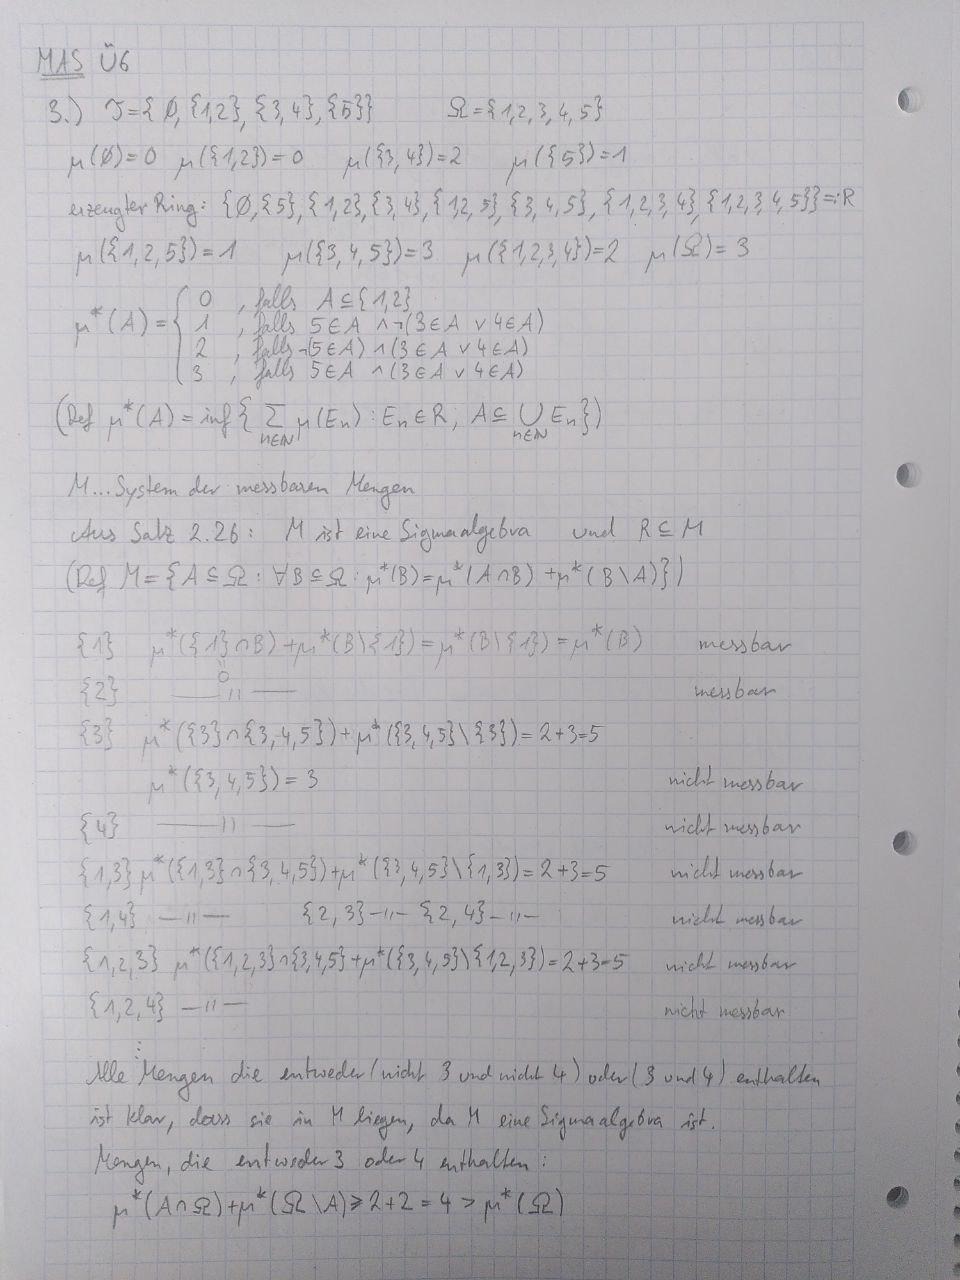 MAS Ü6
3.) T={∅, {1,2}, {3,4}, {5}} Ω={1,2,3,4,5}
μ(∅)=0 μ({1,2})=0 μ({3,4})=2 μ({5})=1
erzeugter Ring: {∅,{5},{1,2},{3,4},{1,2,5},{3,4,5},{1,2,3,4},{1,2,3,4,5}}=:R
μ({1,2,5})=1 μ({3,4,5})=3 μ({1,2,3,4})=2 μ(Ω)=3
μ*(A)={ 0 , falls A⊆{1,2}
1 , falls 5∈A ∧¬(3∈A ∨ 4∈A)
2 , falls ¬(5∈A) ∧ (3∈A ∨ 4∈A)
3 , falls 5∈A ∧(3∈A ∨ 4∈A)
(Def μ*(A)=inf{ ∑_{n∈ℕ} μ(E_n) : E_n∈R, A⊆ ⋃_{n∈ℕ} E_n})
M...System der messbaren Mengen
Aus Satz 2.26: M ist eine Sigmaalgebra und R⊆M
(Def M={A⊆Ω: ∀B⊆Ω: μ*(B)=μ*(A∩B) +μ*(B\A)})
{1} μ*({1}∩B) +μ*(B\{1})=μ*(B\{1})=μ*(B) messbar
=0
{2} —〃— messbar
{3} μ*({3}∩{3,4,5})+μ*({3,4,5}\{3})=2+3=5
μ*({3,4,5})=3 nicht messbar
{4} —〃— nicht messbar
{1,3} μ*({1,3}∩{3,4,5})+μ*({3,4,5}\{1,3})=2+3=5 nicht messbar
{1,4} —〃— {2,3}—〃— {2,4}—〃— nicht messbar
{1,2,3} μ*({1,2,3}∩{3,4,5}+μ*({3,4,5}\{1,2,3})=2+3=5 nicht messbar
{1,2,4} —〃— nicht messbar
⋮
Alle Mengen die entweder (nicht 3 und nicht 4) oder (3 und 4) enthalten
ist klar, dass sie in M liegen, da M eine Sigmaalgebra ist.
Mengen, die entweder 3 oder 4 enthalten:
μ*(A∩Ω)+μ*(Ω\A)≥2+2=4 > μ*(Ω)